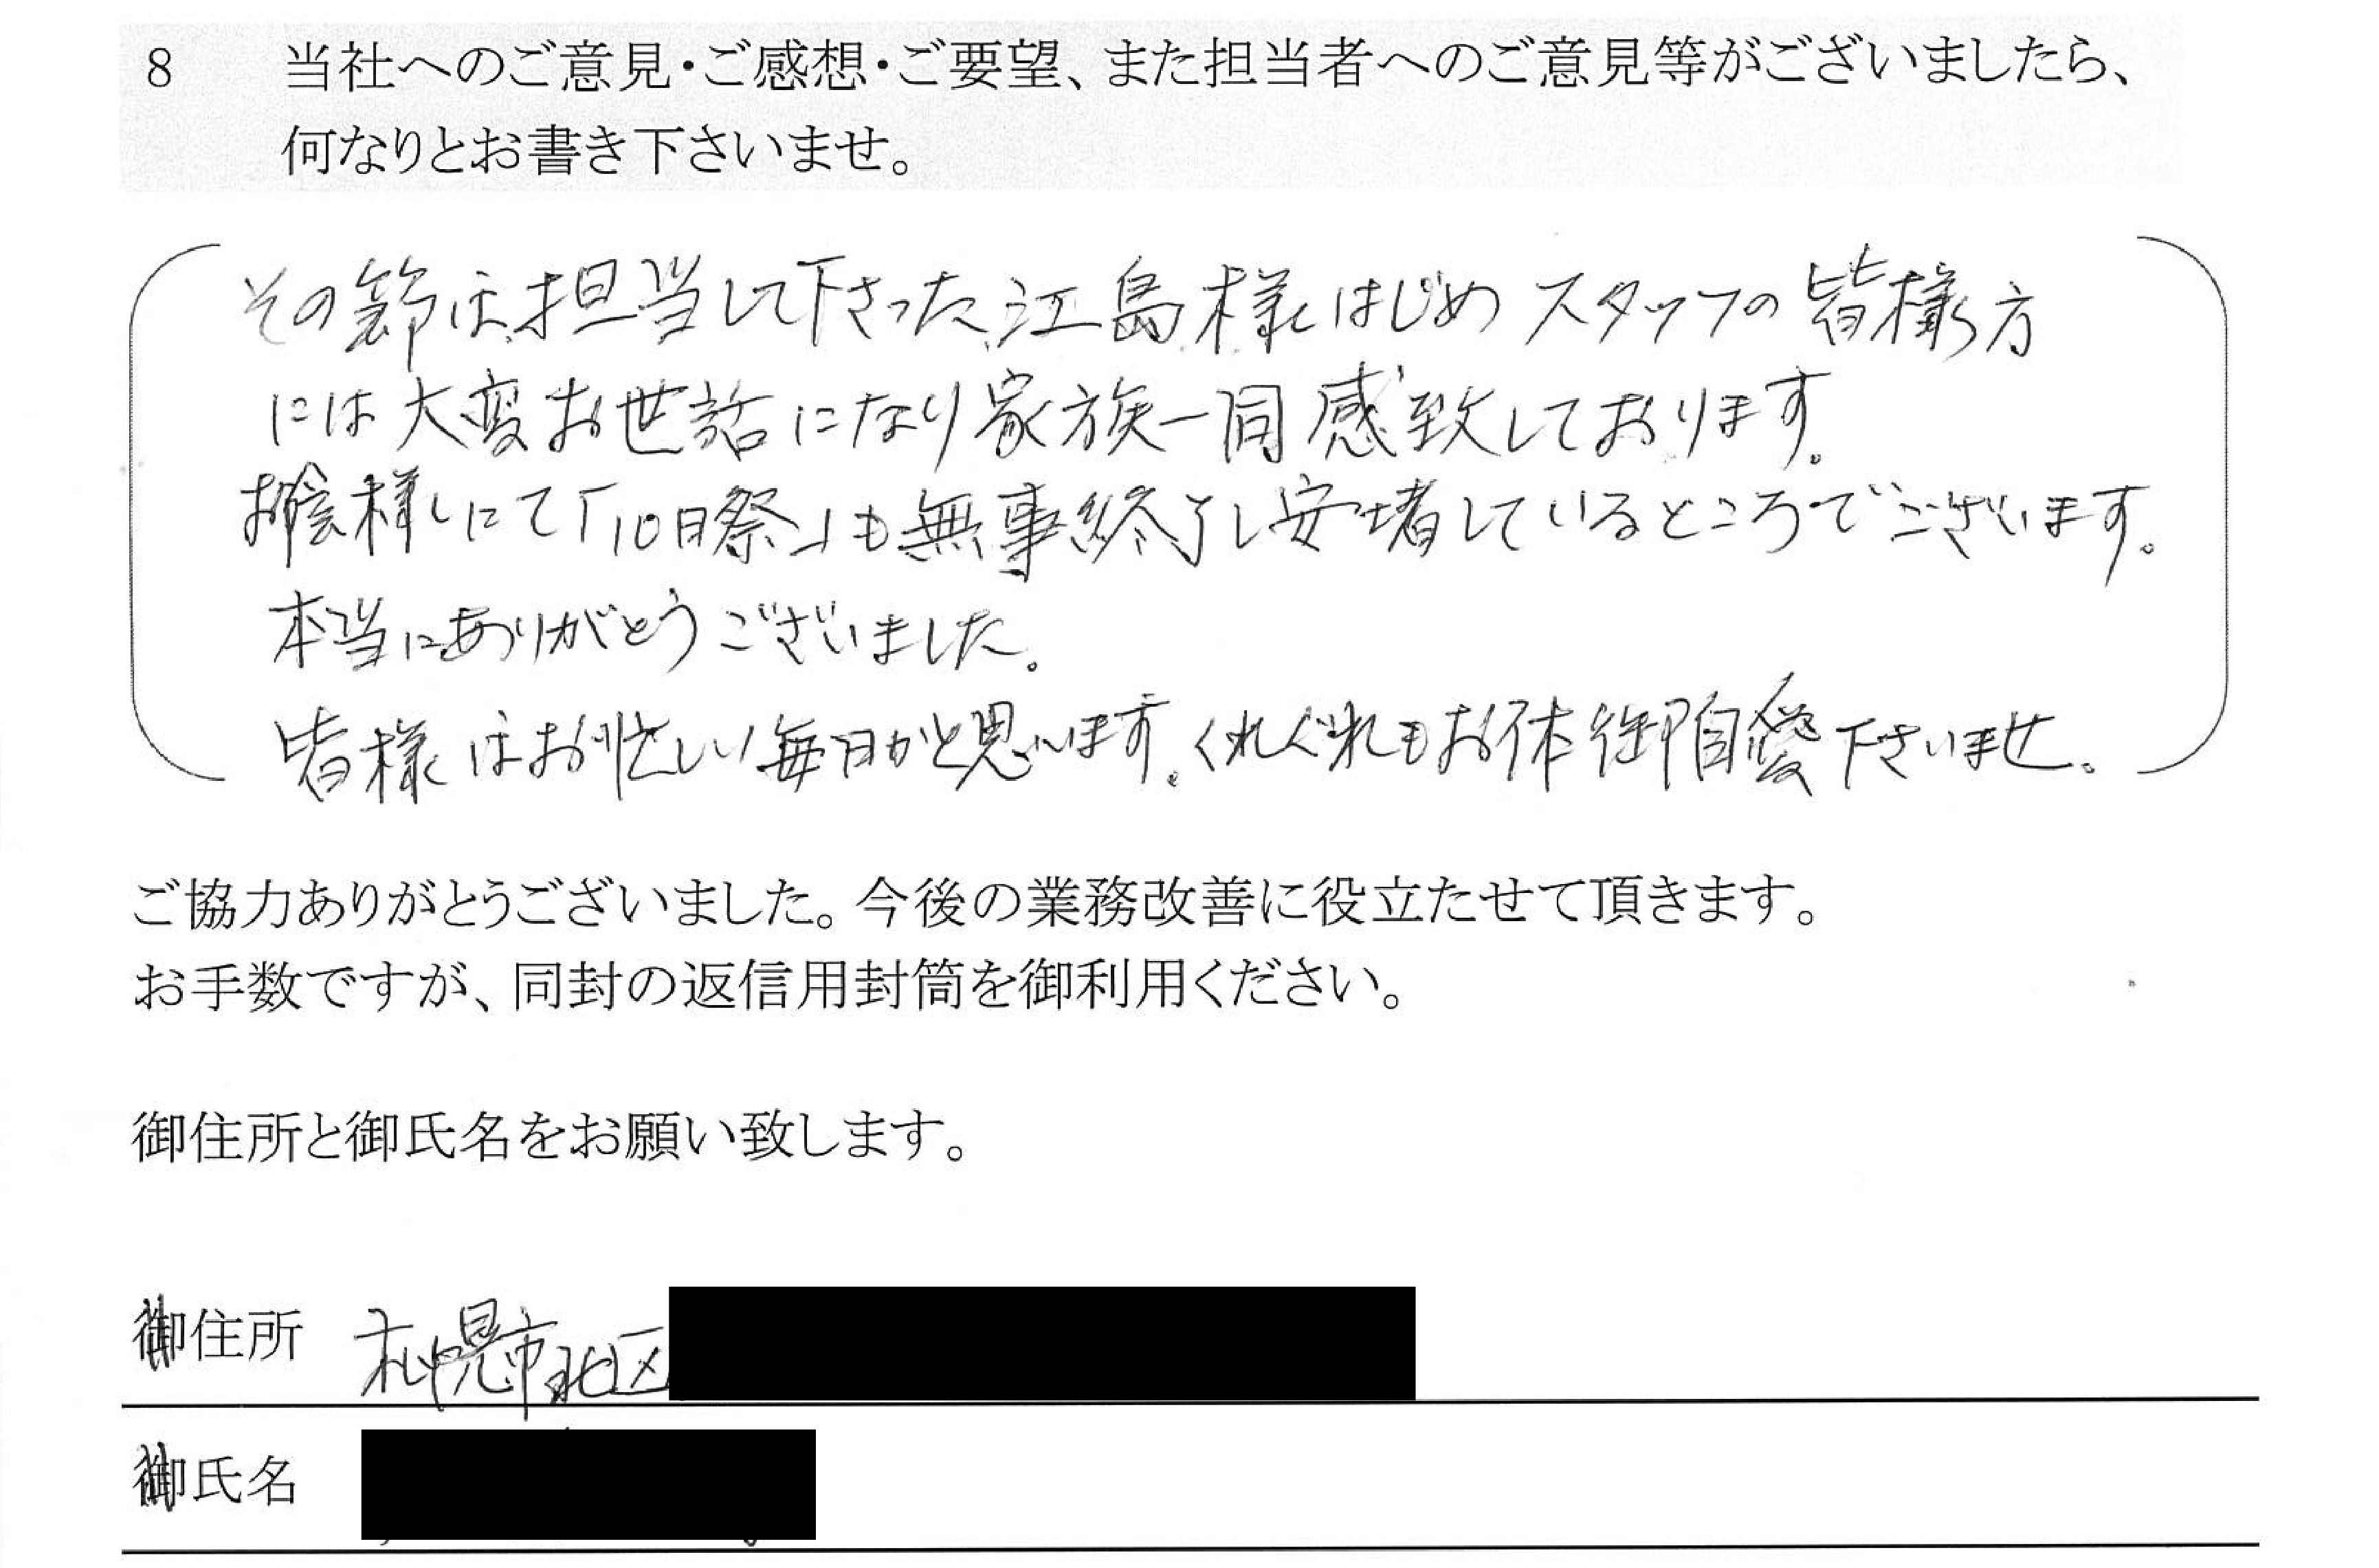 8 当社へのご意見・ご感想・ご要望、また担当者へのご意見等がございましたら、
何なりとお書き下さいませ。
その節は担当して下さった江島様はじめスタッフの皆様方
には大変お世話になり家族一同感致しております。
お陰様にて「10日祭」も無事終了し安堵しているところでございます。
本当にありがとうございました。
皆様はお忙しい毎日かと思います。くれぐれもお体御自愛下さいませ。
ご協力ありがとうございました。今後の業務改善に役立たせて頂きます。
お手数ですが、同封の返信用封筒を御利用ください。
御住所と御氏名をお願い致します。
御住所 札幌市北区
御氏名